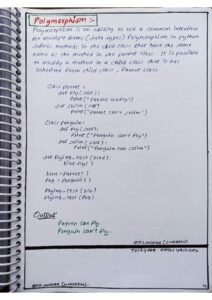 Polymorphism :-
Polymorphism is an ability to use a common interface
for multiple forms (data types) Polymorphism in python
defines methods in the child class that have the same
name as the method in the parent class. It is possible
to modify a method in a child class that it has
inherited from child class, parent class.
Class parrot :
def fly (self):
print ("parrot can fly")
def swim (self):
print ("parrot can't swim")
Class Penguin :
def fly (self):
print ("Penguin can't fly")
def swim (self):
print ("Penguin can swim")
def flying_test (bird):
bird.fly ()
peg = penguin ()
flying_test (peg)
Output
Parrot can fly.
Penguin can't fly.